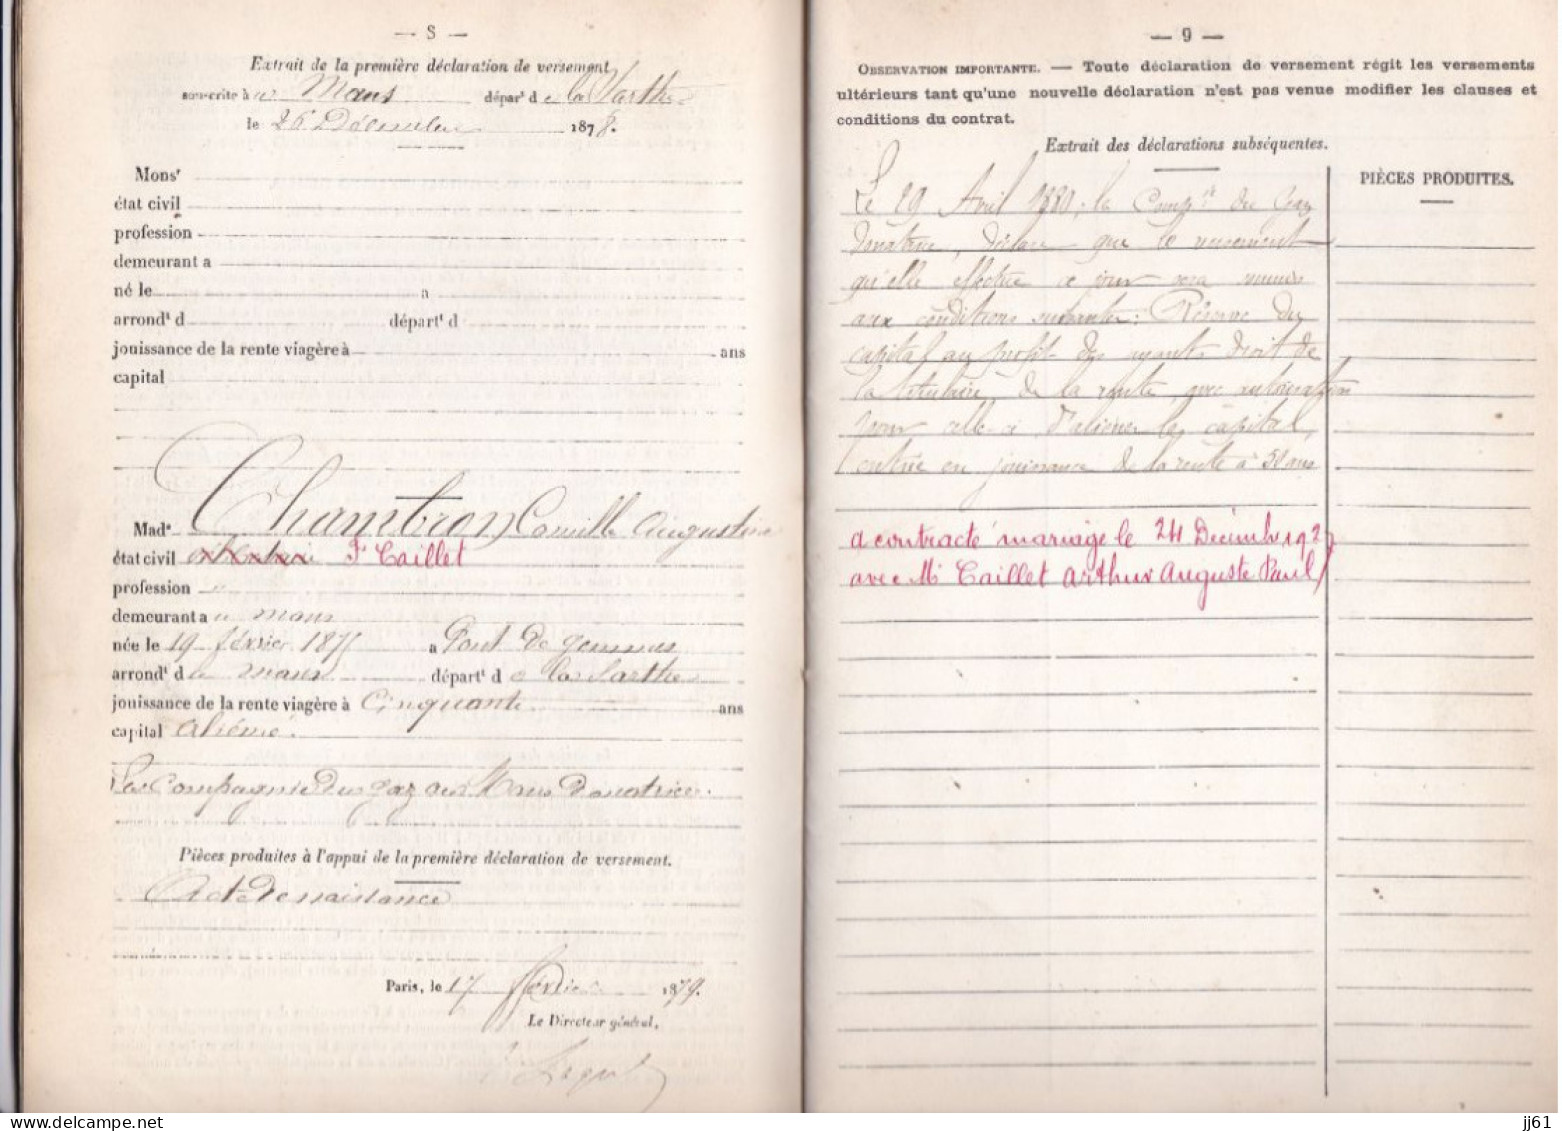 — 8 —
Extrait de la première déclaration de versement
souscrite à au Mans départ' de la Sarthe
le 26 Décembre 1878.
Mons'
état civil
profession
demeurant a
né le a
arrond' d départ' d
jouissance de la rente viagère à ans
capital
Mad' Chambron Camille Augustine
état civil Fe Caillet
profession "
demeurant a au mans
née le 19 février 187 a Pont de gennes
arrond' du mans départ' de la Sarthe
jouissance de la rente viagère à Cinquante ans
capital aliéné.
La Compagnie du gaz au Mans Donatrice.
Pièces produites à l'appui de la première déclaration de versement.
Acte de naissance
Paris, le 17 février 1879.
Le Directeur général,
— 9 —
OBSERVATION IMPORTANTE. — Toute déclaration de versement régit les versements
ultérieurs tant qu'une nouvelle déclaration n'est pas venue modifier les clauses et
conditions du contrat.
Extrait des déclarations subséquentes.
PIÈCES PRODUITES.
Le 29 Avril 1880, la Compie du Gaz
donatrice, déclare que le versement
qu'elle effectue ce jour sera soumis
aux conditions suivantes: Réserve du
capital au profit des ayants droit de
la titulaire, de la rente, avec autorisation
pour celle-ci d'aliéner le capital,
entrée en jouissance de la rente à 50 ans
a contracté mariage le 24 Décembre 192
avec Mr Caillet Arthur Auguste Paul
jj61